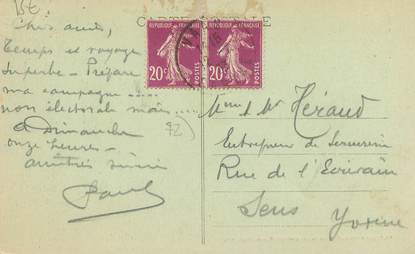 CARTE POSTALE
REPUBLIQUE FRANÇAISE
20c
POSTES
REPUBLIQUE FRANÇAISE
20c
POSTES
Chers amis,
Temps et voyage
superbe – Prépare
ma campagne ....
non électorale mais ....
à Dimanche
onze heures –
amitiés
Paul
92
Mme & Mr Héraud
Entrepreneur de Serrurerie
Rue de l'Ecrivain
Sens Yonne